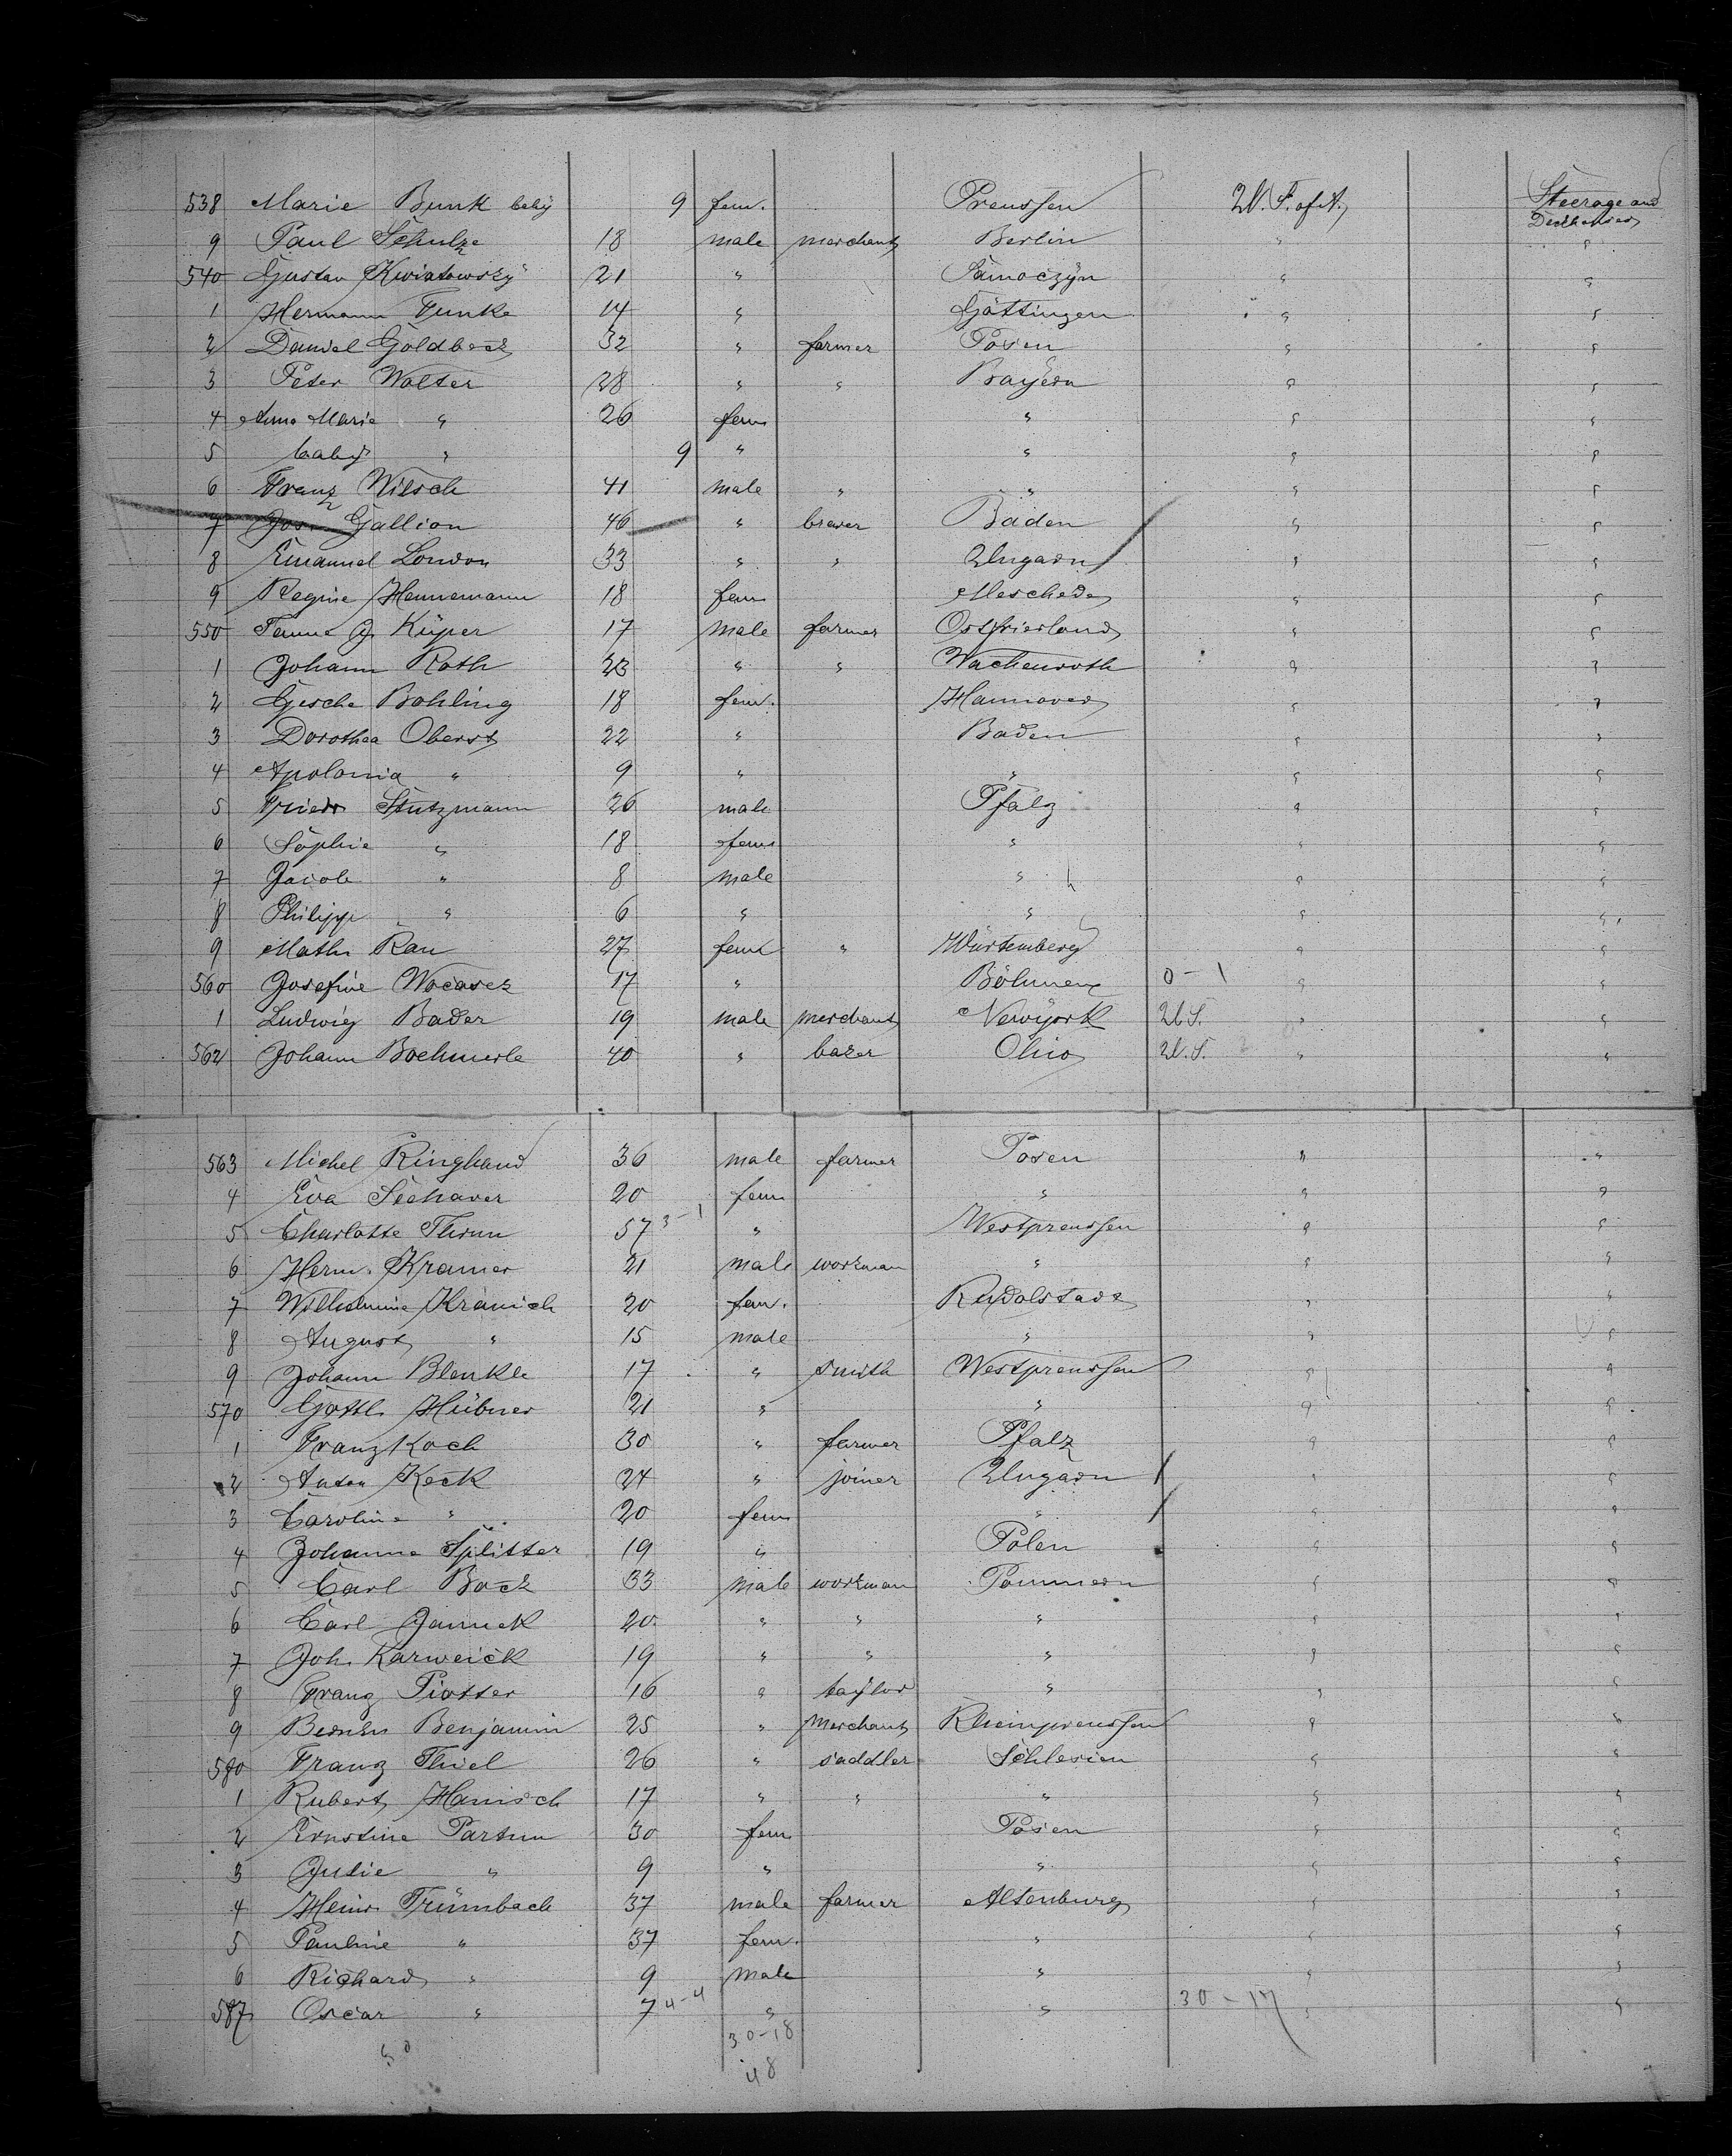 538 Marie Bunk baby 9 fem. Preussen U. S. of A. Steerage and
9 Paul Schulze 18 male merchant Berlin "
540 Gustav Kwiatowsky 21 " Samoczyn " "
1 Hermann Funke 14 " Göttingen " "
2 Daniel Goldbeck 32 " farmer Posen " "
3 Peter Walter 28 " " Bayern " "
4 Anna Marie " 26 fem " " "
5 baby " 9 " " " "
6 Franz Wilsch 41 male " " " "
7 Jos. Gallion 46 " brewer Baden " "
8 Emanuel London 33 " " Ungarn " "
9 Regine Hennemann 18 fem Meschede " "
550 J. Küper 17 male farmer Ostfriesland " "
1 Johann Roth 23 " " Wachenroth " "
2 Gesche Bohling 18 fem. Hannover " "
3 Dorothea Oberst 22 " Baden " "
4 Apolonia " 9 " " " "
5 Friedr Stutzmann 26 male Pfalz " "
6 Sophie " 18 fem " " "
7 Jacob " 8 male " " "
8 Philipp " 6 " " " "
9 Math. Rau 27 fem " Würtemberg " "
560 Josefine Wocasek 17 " Böhmen 0-1 " "
1 Ludwig Bader 19 male merchant Newyork U S. " "
562 Johann Boehmerle 40 " baker Ohio U. S. " "
563 Michel Ringhand 36 male farmer Posen " "
4 Eva Seehaver 20 fem " " "
5 Charlotte Thrun 57 3-1 " Westpreussen " "
6 Herm. Kramer 21 male workman " " "
7 Wilhelmine Kranich 20 fem. Rudolstadt " "
8 August " 15 male " " "
9 Johann Blenkle 17 " smith Westpreussen " "
570 Gottl. Hübner 21 " " " "
1 Franz Koch 30 " farmer Pfalz " "
2 Anton Keck 24 " joiner Ungarn " "
3 Caroline " 20 fem " " "
4 Johanna Splitter 19 " Polen " "
5 Carl Bock 33 male workman Pommern " "
6 Carl Jannek 20 " " " " "
7 Joh. Karweick 19 " " " " "
8 Franz Piotter 16 " taylor " " "
9 Benjamin 25 " merchant Rheinpreussen " "
580 Franz Thiel 26 " saddler Schlesien " "
1 Rubert Hanisch 17 " " " " "
2 Ernstine Partun 30 fem Posen " "
3 Julie " 9 " " " "
4 Heinr Trümbach 37 male farmer Altenburg " "
5 Pauline " 37 fem. " " "
6 Richard " 9 male " " "
587 Oscar " 7 4-4 " " 30-17 " "
30-18
48